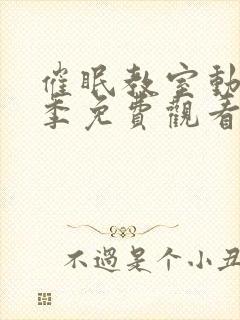 催眠教室動
季免費觀看
不過是个小丑